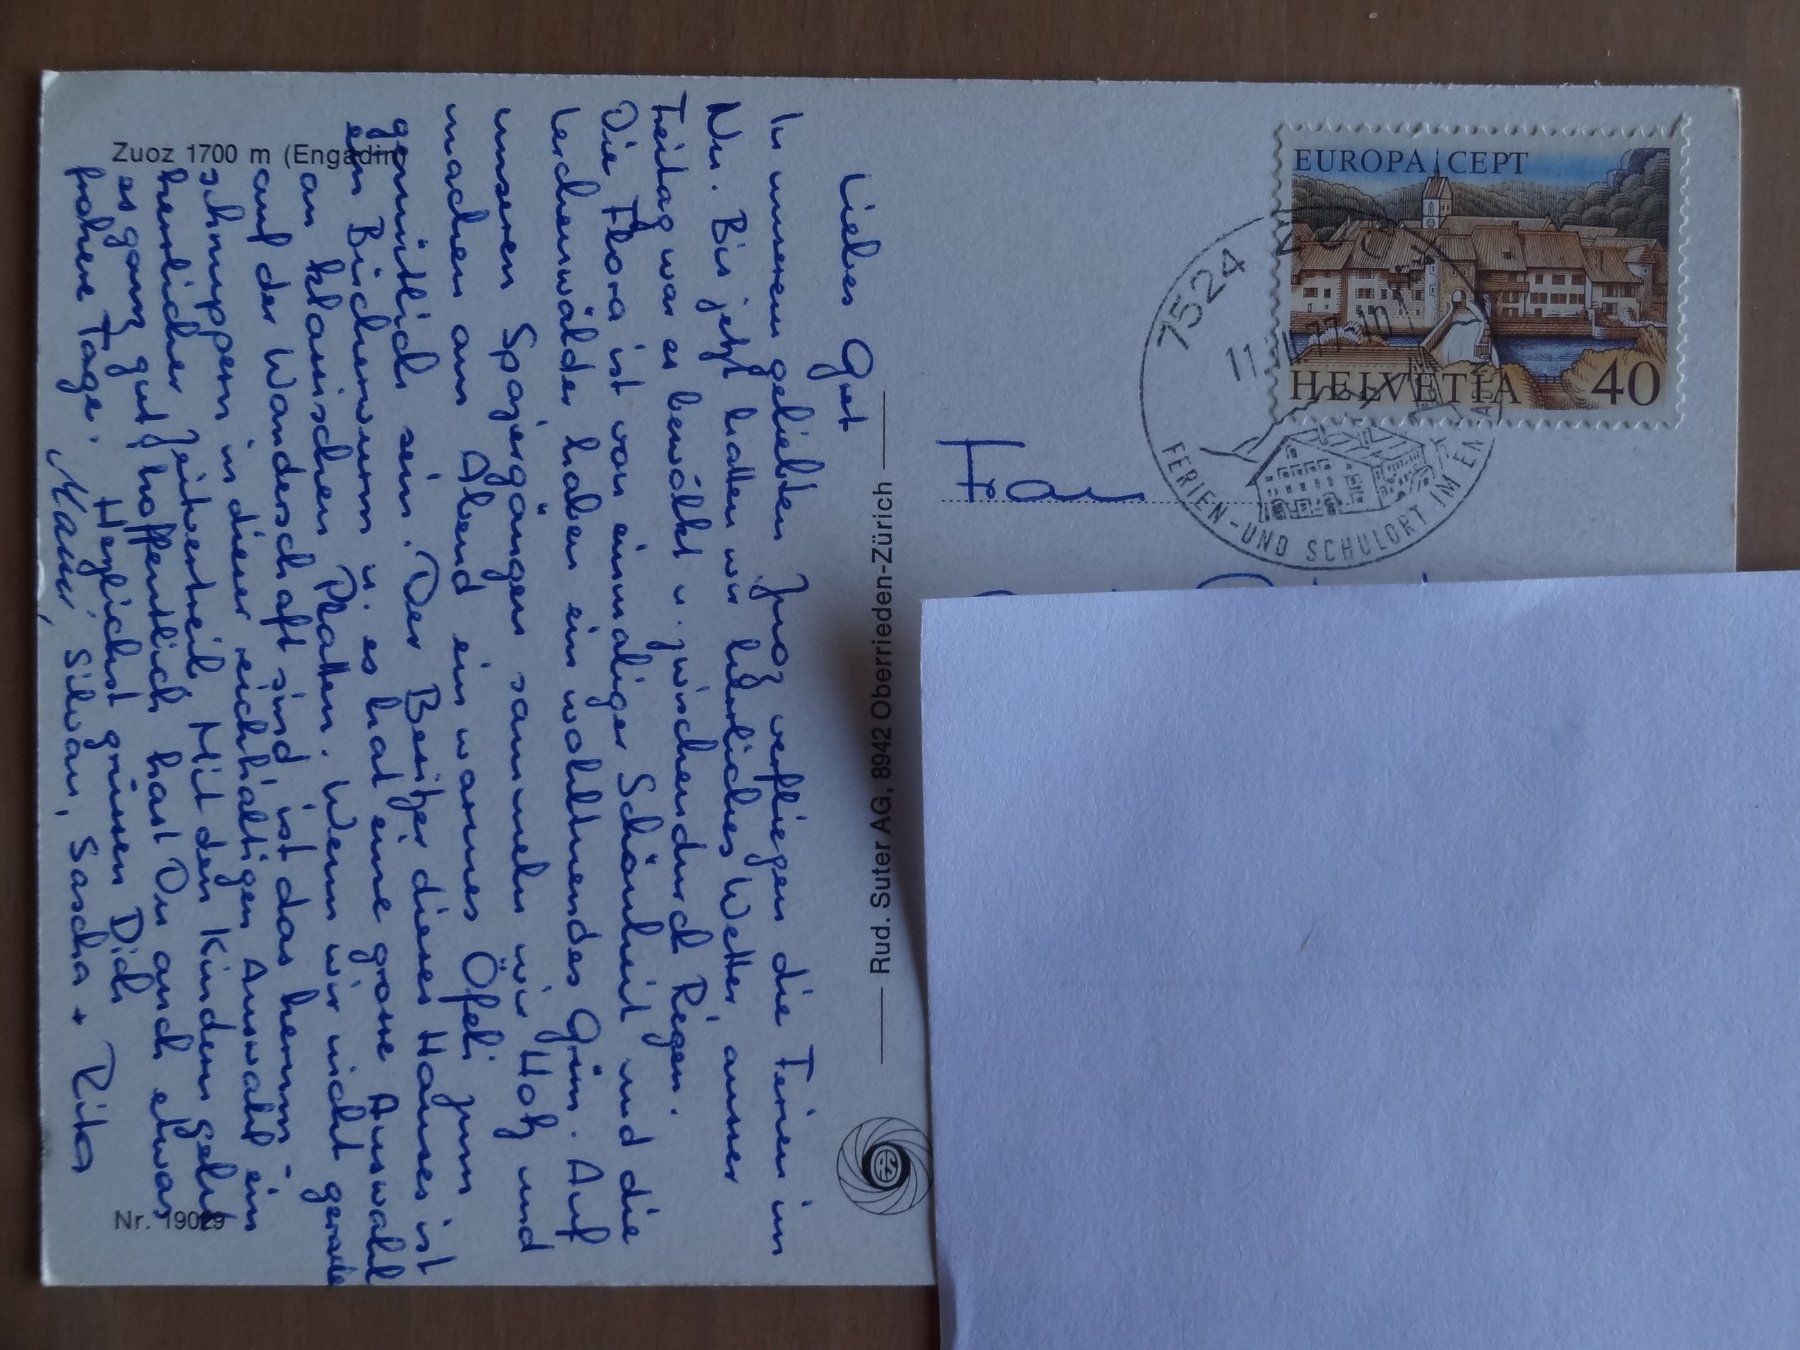 Zuoz 1700 m (Engadin)
Liebes Gret
In unserem geliebten Zuoz verfliegen die Ferien im
Nu. Bis jetzt hatten wir herrliches Wetter, ausser
Freitag war es bewölkt u. zwischendurch Regen.
Die Flora ist von einmaliger Schönheit und die
Lerchenwälder haben ein wohltuendes Grün. Auf
unseren Spaziergängen sammeln wir Holz und
machen am Abend ein warmes Öfeli zum
gemütlich sein. Der Besitzer dieses Hauses ist
ein Bücherwurm u. es hat eine grosse Auswahl
an klassischen Platten. Wenn wir nicht gerade
auf der Wanderschaft sind ist das herum-
schnuppern in dieser reichhaltigen Auswahl ein
herrlicher Zeitvertreib. Mit den Kindern geht
es ganz gut, hoffentlich hast Du auch etwas
frohere Tage. Herzlichst grüssen Dich
Silvan, Sascha + Rita
Nr. 19029
Rud. Suter AG, 8942 Oberrieden-Zürich
RS
EUROPA CEPT
HELVETIA 40
7524
FERIEN- UND SCHULORT IM
Frau